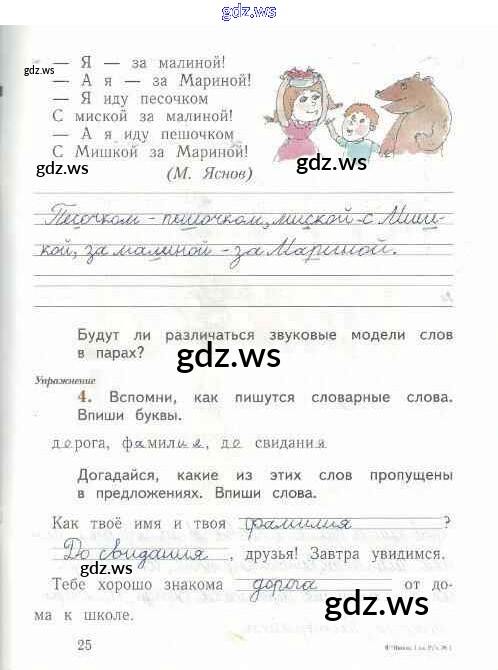 gdz.ws
— Я — за малиной!
gdz.ws
— А я — за Мариной!
— Я иду песочком
С миской за малиной!
— А я иду пешочком
С Мишкой за Мариной!
gdz.ws
gdz.ws
(М. Яснов)
Песочком - пешочком, миской - с Миш-
кой, за малиной - за Мариной.
Будут ли различаться звуковые модели слов
в парах?
gdz.ws
Упражнение
4. Вспомни, как пишутся словарные слова.
Впиши буквы.
gdz.ws
дорога, фамилия, до свидания
Догадайся, какие из этих слов пропущены
в предложениях. Впиши слова.
gdz.ws
Как твоё имя и твоя фамилия ?
До свидания , друзья! Завтра увидимся.
Тебе хорошо знакома дорога от до-
ма к школе.
gdz.ws
gdz.ws
25